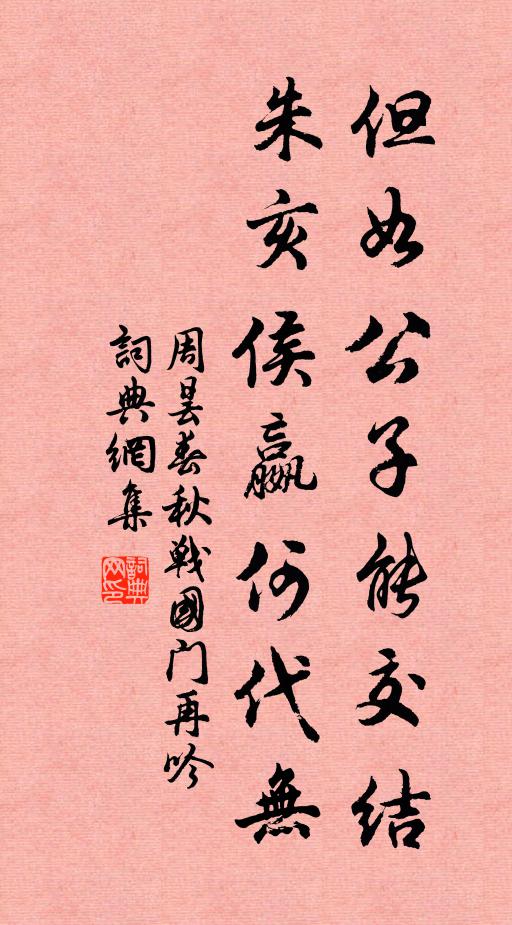 但如公子能交結
朱亥侯嬴何代無
周昙春秋戰國门再吟
詞典網集
詞典网印